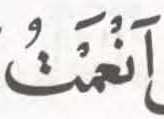 اَنْعَمْتُ